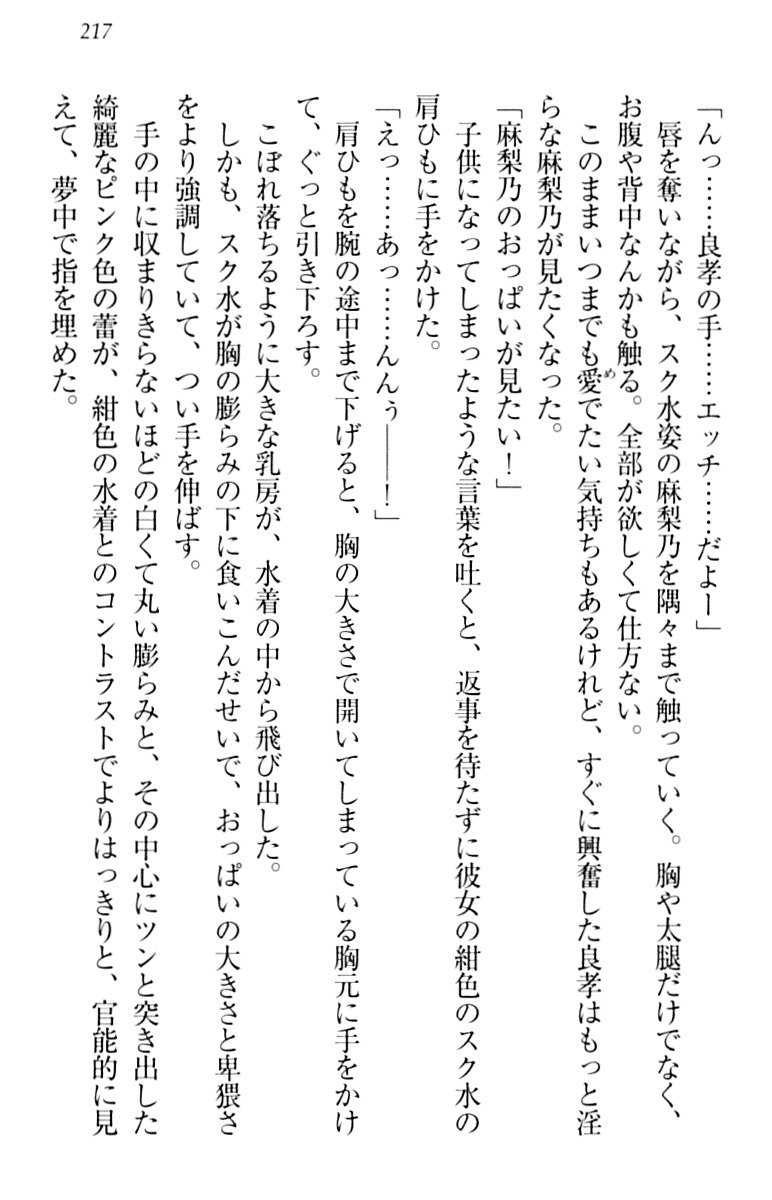 217
「んっ……良孝の手……エッチ……だよー」
唇を奪いながら、スク水姿の麻梨乃を隅々まで触っていく。胸や太腿だけでなく、
お腹や背中なんかも触る。全部が欲しくて仕方ない。
このままいつまでも愛めでたい気持ちもあるけれど、すぐに興奮した良孝はもっと淫
らな麻梨乃が見たくなった。
「麻梨乃のおっぱいが見たい！」
子供になってしまったような言葉を吐くと、返事を待たずに彼女の紺色のスク水の
肩ひもに手をかけた。
「えっ……あっ……んんぅ――！」
肩ひもを腕の途中まで下げると、胸の大きさで開いてしまっている胸元に手をかけ
て、ぐっと引き下ろす。
こぼれ落ちるように大きな乳房が、水着の中から飛び出した。
しかも、スク水が胸の膨らみの下に食いこんだせいで、おっぱいの大きさと卑猥さ
をより強調していて、つい手を伸ばす。
手の中に収まりきらないほどの白くて丸い膨らみと、その中心にツンと突き出した
綺麗なピンク色の蕾が、紺色の水着とのコントラストでよりはっきりと、官能的に見
えて、夢中で指を埋めた。